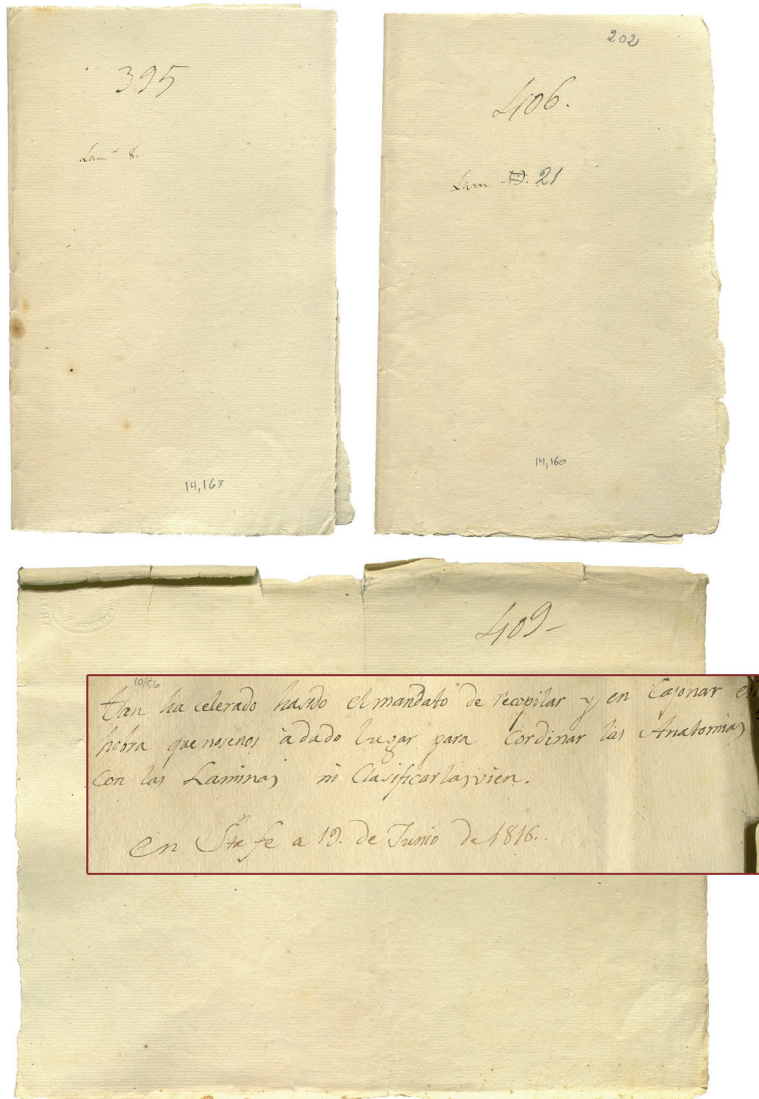 395
Lam.ª 8.
14,163
202
406.
Lam 21
14,160
409-
10/56
tan ha celerado hasido el mandato de recopilar y en Cajonar
hobra que nosenos à dado lugar para Cordinar las Anatomias
Con las Laminas ni Clasificarlas vien.
en Sta fe a 19. de Junio de 1816.